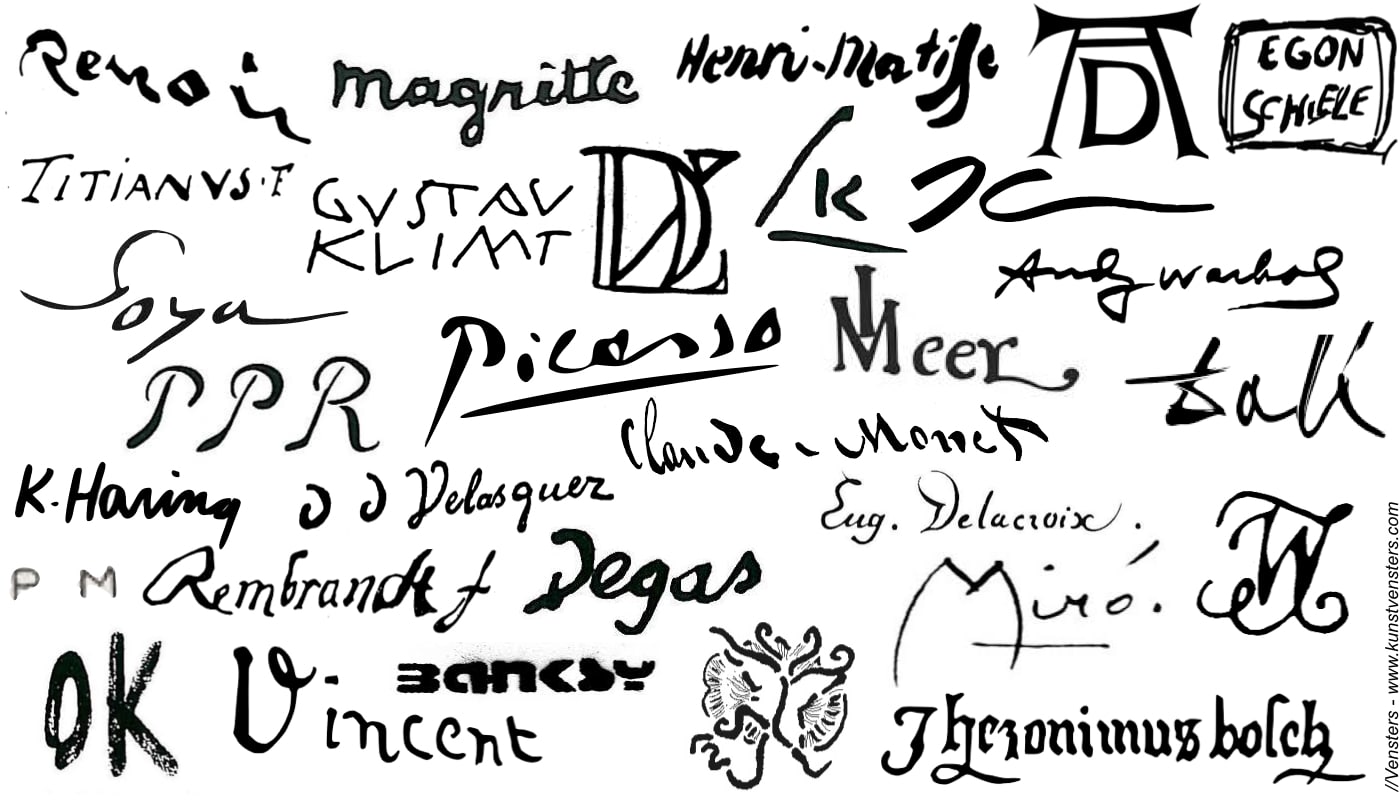 Renoir
magritte
Henri-Matisse
AD
EGON
SCHIELE
TITIANVS·F
GUSTAV
KLIMT
K
Andy Warhol
Goya
Picasso
IMeer
Dali
PPR
Claude Monet
K. Haring
Velasquez
Eug. Delacroix.
PM
Rembrandt f
Degas
Miró.
OK
Vincent
BANKSY
Jheronimus bosch
//Vensters - www.kunstvensters.com